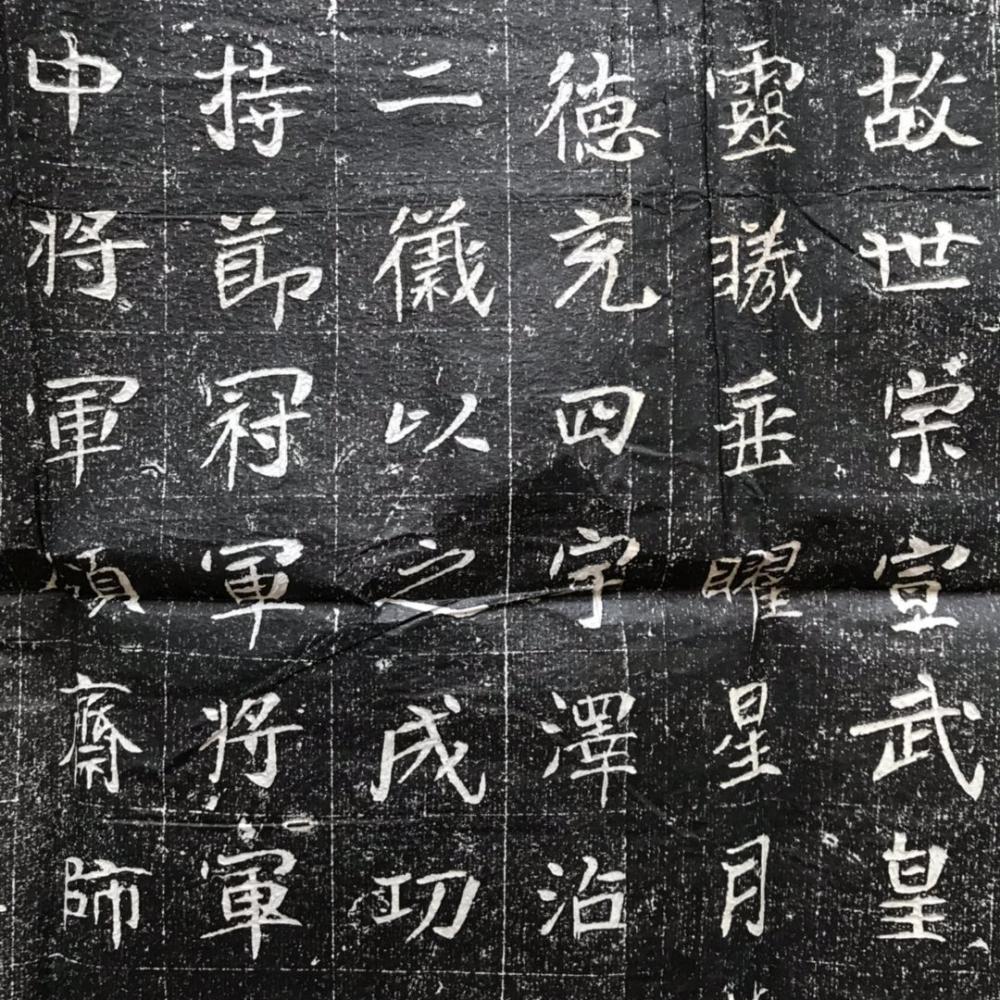 故世宗宣武皇
靈曦垂曜星月
德充四宇澤沿
二儀以之成功
持節冠軍將軍
中將軍領齋師